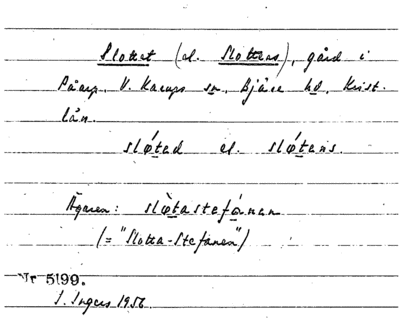 Slottet (el. Slottens), gård i
Påarp, V. Karups sn, Bjäre hd, Krist.
län.
slǿtad el. slǿtans.
Ägaren: slø̀tastefánan
(= "Slotta-Stefanen")
Nr 5199.
I. Ingers 1956.